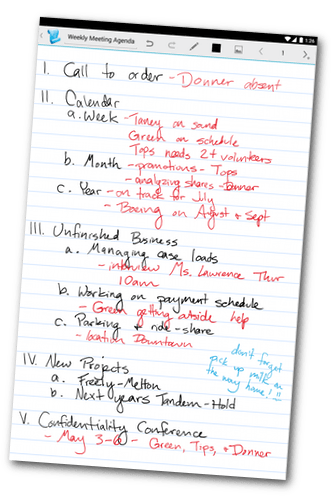 1:26
Weekly Meeting Agenda
1
I. Call to order - Donner absent
II. Calendar
a. Week - Taney on sand
Green on schedule
Tops needs 2+ volunteers
b. Month - promotions - Tops
- analyzing shares - Donner
c. Year - on track for July
- Boeing on August + Sept
III. Unfinished Business
a. Managing case loads
- interview Ms. Lawrence Thur
10am
b. Working on payment schedule
- Green getting outside help
c. Parking + ride-share
- location Downtown
don't forget
pick up milk on
the way home!!!
IV. New Projects
a. - Melton
b. Next years Tandem - Hold
V. Confidentiality Conference
- May 3-6 - Green, Tips, + Donner